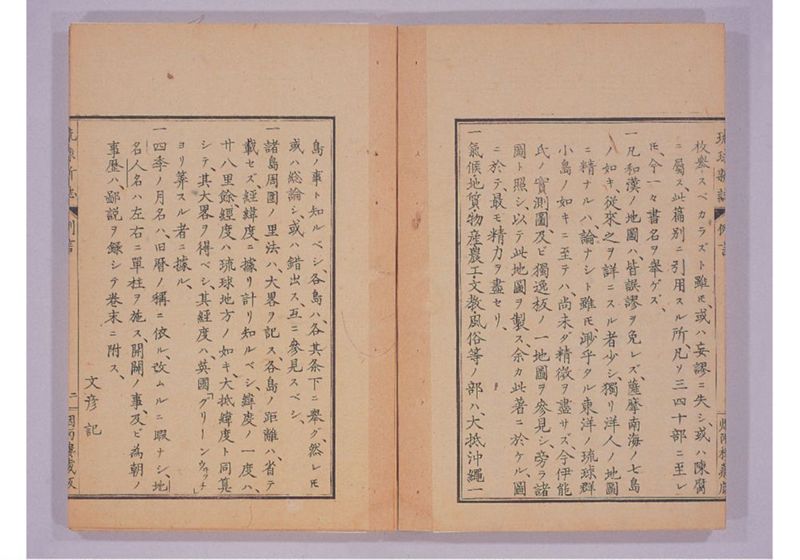 枚擧スベカラズト雖𪜈、或ハ妄謬ニ失シ、或ハ陳腐
ニ屬ス、此篇別ニ引用スル所、凡ソ三四十部ニ至レ
𪜈、今一々書名ヲ擧ゲズ、
一凡和漢ノ地圖ハ、皆誤謬ヲ免レズ、薩摩南海ノ七島
ノ如キ、從來之ヲ詳ニスル者少シ、獨リ洋人ノ地圖
ニ精ナルハ論ナシト雖𪜈、渺乎タル東洋ノ琉球群
小島ノ如キニ至テハ尚未ダ精微ヲ盡サズ、今伊能
氏ノ實測圖、及ビ獨逸板ノ一地圖ヲ參見シ、旁ラ諸
圖ト照シ、以テ此地圖ヲ製ス、余カ此著ニ於ケル、圖
ニ於テ最モ精力ヲ盡セリ、
一氣候地質物産農工文教風俗等ノ部ハ、大抵沖繩一
島ノ事ト知ルベシ、各島ハ、各其条下ニ擧グ、然レ𪜈
或ハ総論シ、或ハ錯出ス、互ニ參見スベシ、
一諸島周圍ノ里法ハ、大畧ヲ記ス、各島ノ距離ハ、省テ
載セズ、經緯度ニ據リ計リ知ルベシ、緯度ノ一度ハ、
廿八里餘、經度ハ琉球地方ノ如キ、大抵緯度ト同算
シテ、其大畧ヲ得ベシ、其經度ハ英國グリーンウッチ
ヨリ筭スル者ニ據ル、
一四季ノ月名ハ、旧暦ノ稱ニ依ル、改ムルニ暇ナシ、地
名人名ハ左右ニ單柱ヲ施ス、開闢ノ事、及ビ為朝ノ
事歴ハ、鄙説ヲ録シテ卷末ニ附ス、
文彦記
例言
二